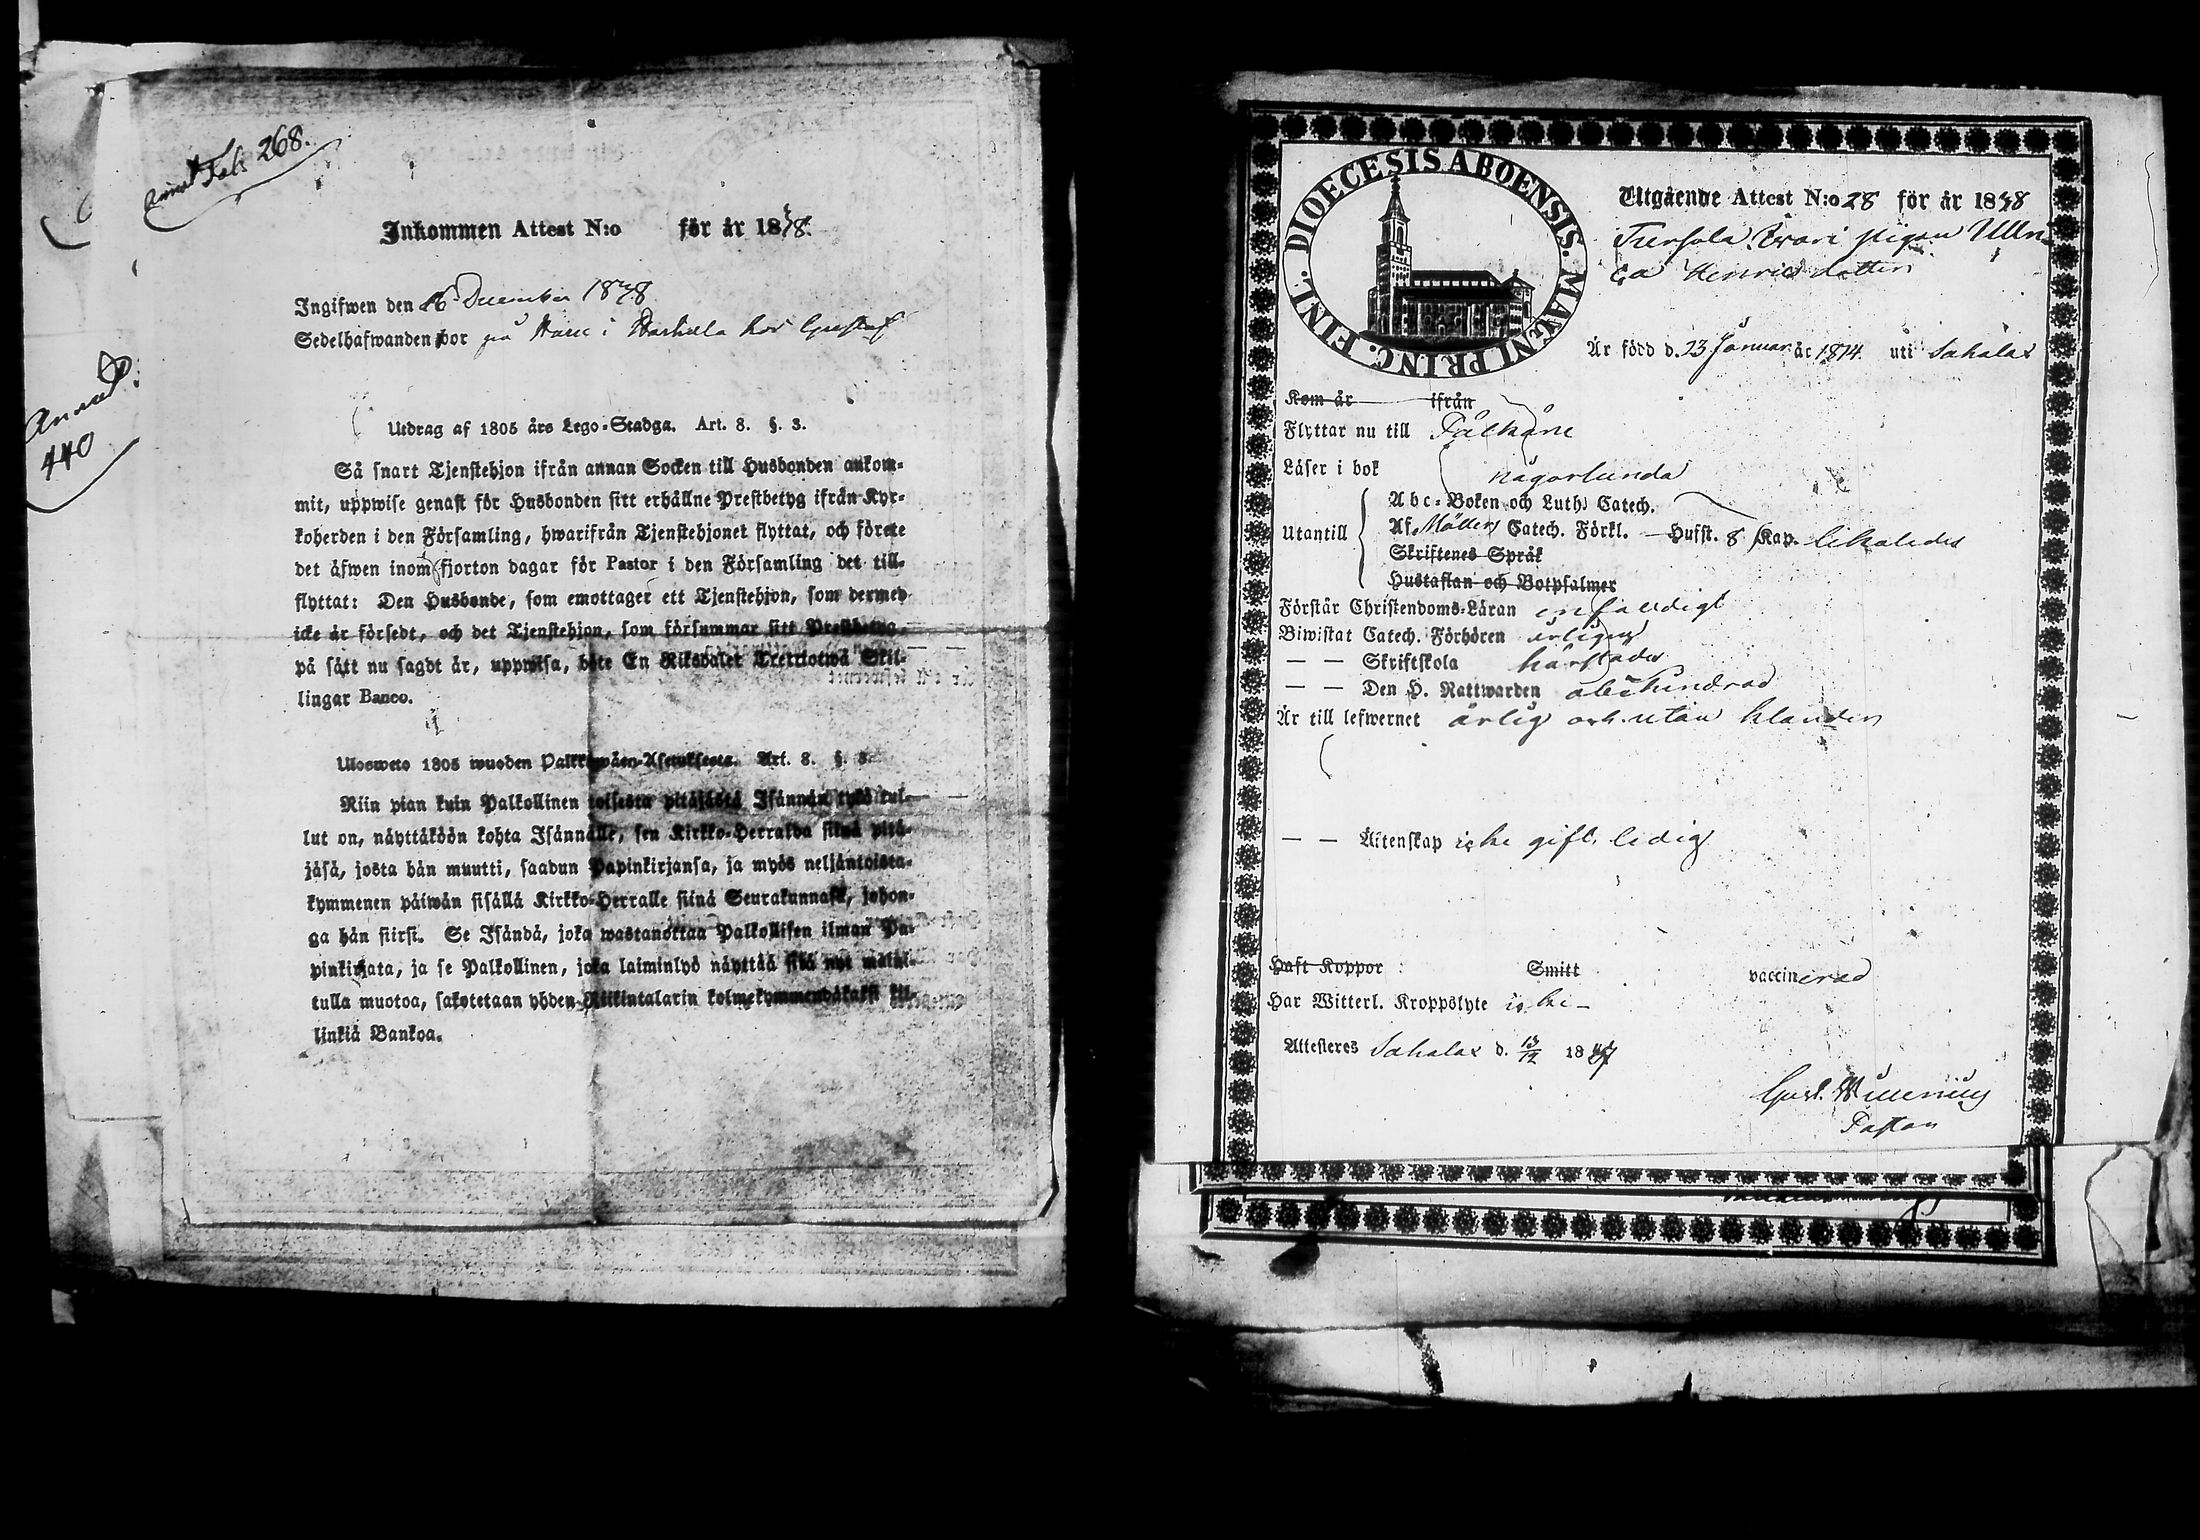 annot Fol: 268.
Annot:
440
Inkommen Attest N:o för år 1848.
Ingifwen den 16 December 1848
Sedelhafwanden bor på i hos Gustaf
Utdrag af 1805 års Lego-Stadga. Art. 8. §. 3.
Så snart Tjenstehjon ifrån annan Socken till Husbonden ankom-
mit, uppwise genast för Husbonden sitt erhållne Prestbetyg ifrån Kyr-
koherden i den Församling, hwarifrån Tjenstehjonet flyttat, och förete
det äfwen inom fjorton dagar för Pastor i den Församling det till-
flyttat: Den Husbonde, som emottager ett Tjenstehjon, som dermed
icke är försedt, och det Tjenstehjon, som försummar sitt Prestbetyg,
på sätt nu sagdt är, uppwisa, böte En Riksdaler Trettiotwå Skil-
lingar Banco.
Ulosweto 1805 wuoden Palkkawäen-Asetuksesta. Art. 8. §. 3.
Niin pian kuin Palkollinen toisesta pitäjästä Isännän tykö tul-
lut on, näyttäköön kohta Isännälle, sen Kirkko-Herralda siinä pitä-
jäsä, josta hän muutti, saadun Papinkirjansa, ja myös neljäntoista-
kymmenen päiwän sisällä Kirkko-Herralle siinä Seurakunnasa, johon-
ga hän siirsi. Se Isändä, joka wastanottaa Palkollisen ilman Pa-
pinkirjata, ja se Palkollinen, joka laiminlyö näyttää sitä nyt mainit-
tulla muotoa, sakotetaan yhden Riikintalarin kolmekymmendäkaksi kil-
linkiä Bankoa.
DIOECESIS ABOENSIS. MAGNI PRINC. FINL.
Utgående Attest N:o 28 för år 1848
pigan Ulri
ca Henrics dotter
Är född d. 23 Januar år 1814. uti Sahalax
Kom år ifrån
Flyttar nu till Pälkäne
Läser i bok någorlunda
Abc-Boken och Luth. Catech.
Utantill Af Möllers Catech. Förkl. Hufst. 8 Kap. likaledes
Skriftenes Språk
Hustaflan och Botpsalmer
Förstår Christendoms-Läran enfaldigt
Biwistat Catech. Förhören årligen
— — Skriftskola härstädes
— — Den H. Nattwarden obehindrad
Är till lefwernet ärlig och utan klander
— — Äktenskap icke gift, ledig
Haft Koppor Smitt vaccinerad
Har Witterl. Kroppslyte icke —
Attesteres Sahalax d. 13/12 1847
Gust.
Pastor